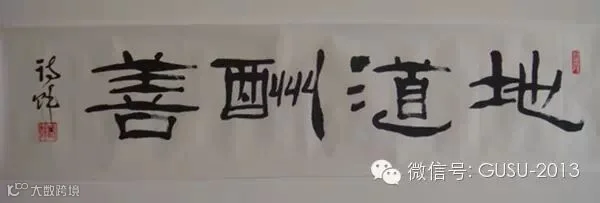 地道酬善
微信号: GUSU-2013
大数跨境